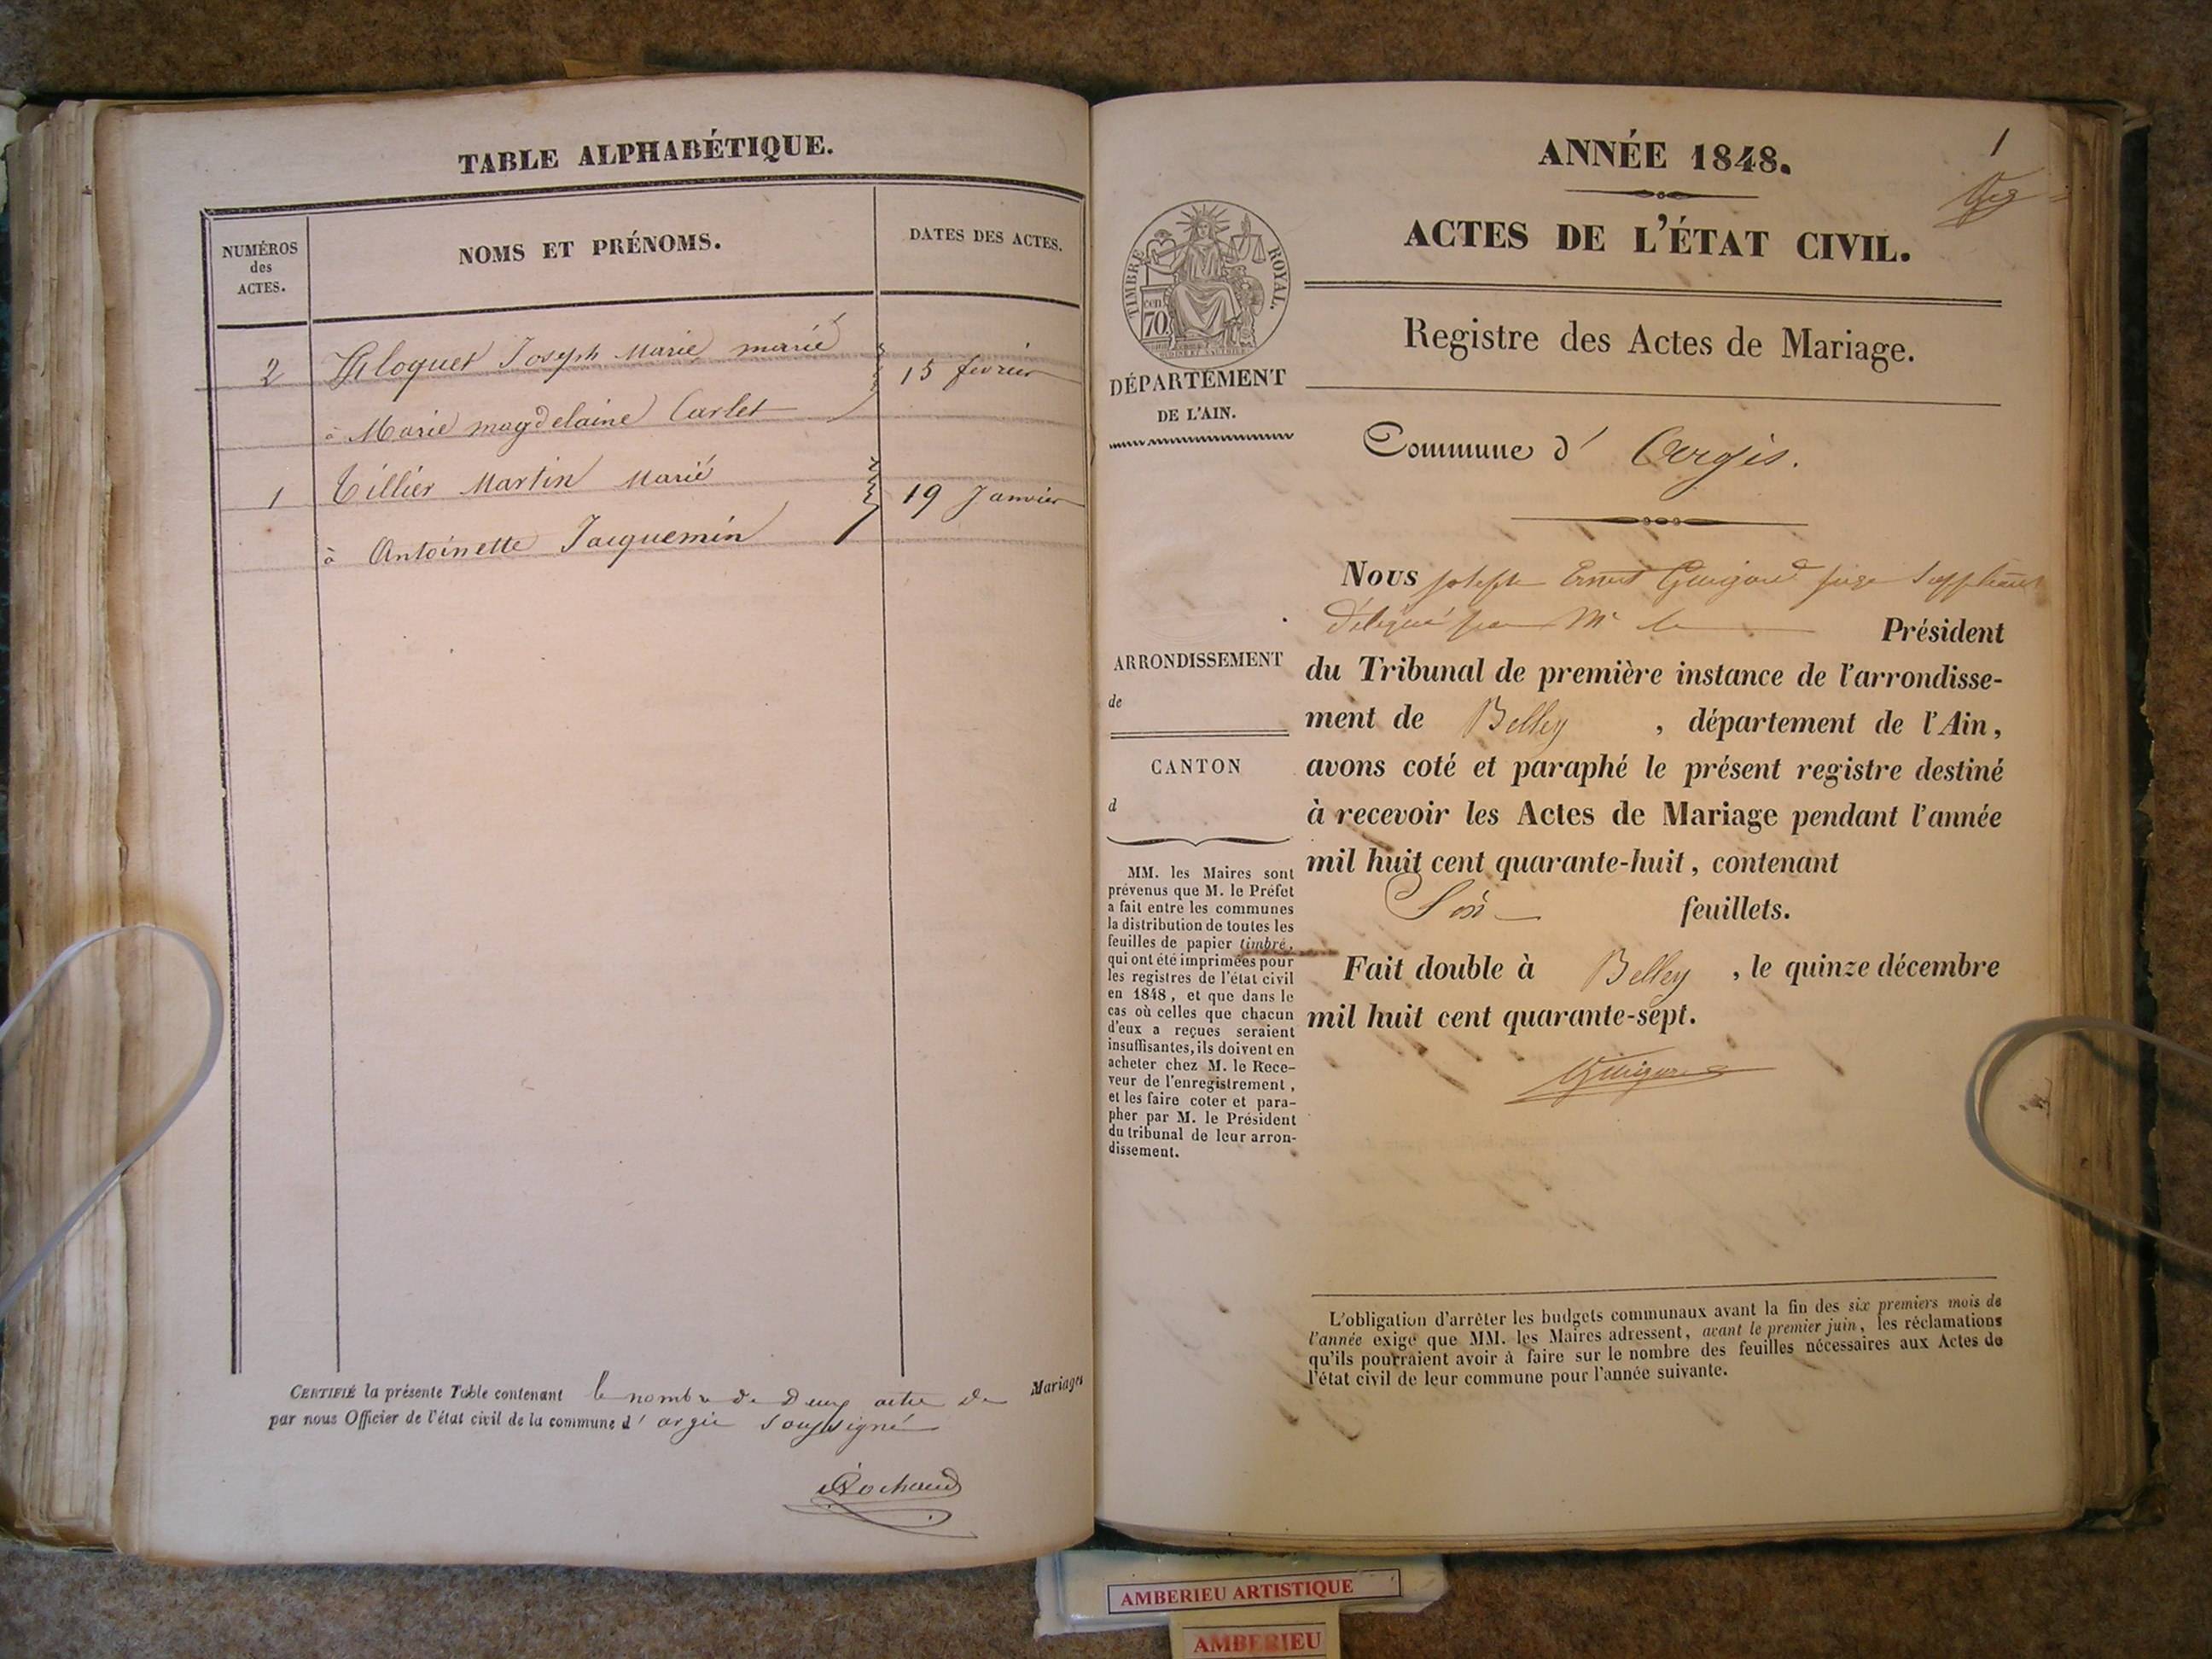 TABLE ALPHABÉTIQUE.
NUMÉROS
des
ACTES.
NOMS ET PRÉNOMS.
DATES DES ACTES.
2 Joseph Marie marié 15 fevrier
à Marie magdelaine Carlet
1 Tillier Martin Marié 19 Janvier
à Antoinette Jacquemin
CERTIFIÉ la présente Table contenant le nombre de Deux actes de Mariages
par nous Officier de l'état civil de la commune d' argis soussigné
ANNÉE 1848.
1
ACTES DE L'ÉTAT CIVIL.
TIMBRE ROYAL.
cen.
70
Registre des Actes de Mariage.
DÉPARTEMENT
DE L'AIN.
Commune d' Argis.
Nous joseph Ernest Guigard juge Suppléant
Délégué par Mr le Président
du Tribunal de première instance de l'arrondisse-
ment de Belley , département de l'Ain,
avons coté et paraphé le présent registre destiné
à recevoir les Actes de Mariage pendant l'année
mil huit cent quarante-huit, contenant
Six feuillets.
Fait double à Belley , le quinze décembre
mil huit cent quarante-sept.
ARRONDISSEMENT
de
CANTON
d
MM. les Maires sont
prévenus que M. le Préfet
a fait entre les communes
la distribution de toutes les
feuilles de papier timbré,
qui ont été imprimées pour
les registres de l'état civil
en 1848, et que dans le
cas où celles que chacun
d'eux a reçues seraient
insuffisantes, ils doivent en
acheter chez M. le Rece-
veur de l'enregistrement,
et les faire coter et para-
pher par M. le Président
du tribunal de leur arron-
dissement.
L'obligation d'arrêter les budgets communaux avant la fin des six premiers mois de
l'année exige que MM. les Maires adressent, avant le premier juin, les réclamations
qu'ils pourraient avoir à faire sur le nombre des feuilles nécessaires aux Actes de
l'état civil de leur commune pour l'année suivante.
AMBERIEU ARTISTIQUE
AMBERIEU